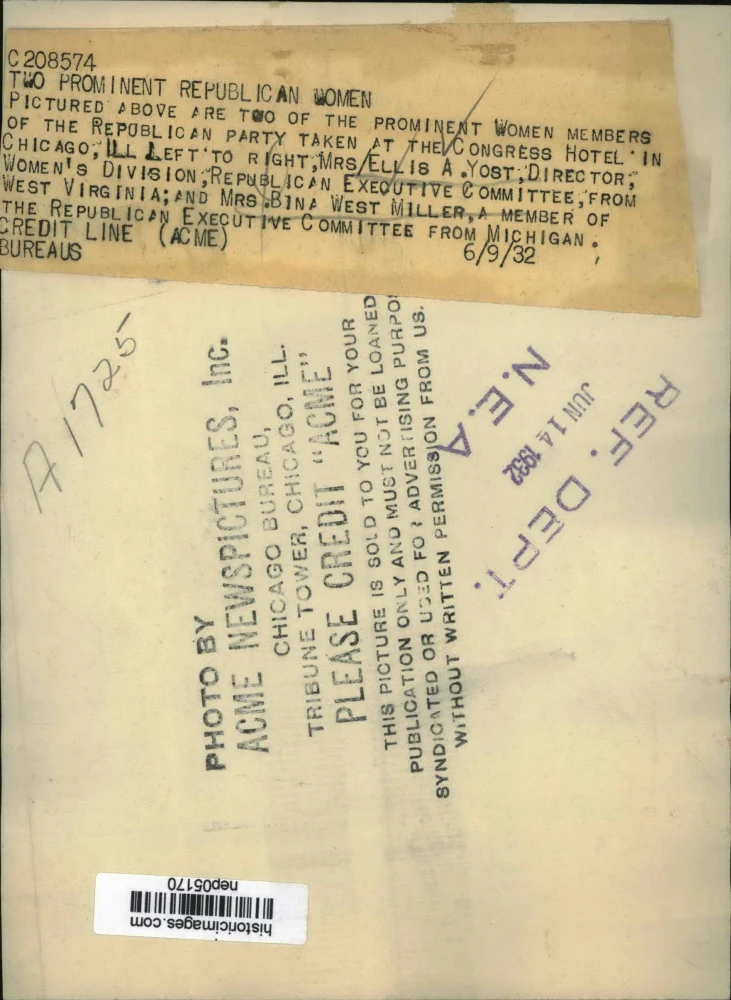 C 208574
TWO PROMINENT REPUBLICAN WOMEN
PICTURED ABOVE ARE TWO OF THE PROMINENT WOMEN MEMBERS
OF THE REPUBLICAN PARTY TAKEN AT THE CONGRESS HOTEL IN
CHICAGO, ILL LEFT TO RIGHT, MRS ELLIS A. YOST, DIRECTOR,
WOMEN'S DIVISION, REPUBLICAN EXECUTIVE COMMITTEE, FROM
WEST VIRGINIA; AND MRS. BINA WEST MILLER, A MEMBER OF
THE REPUBLICAN EXECUTIVE COMMITTEE FROM MICHIGAN.
CREDIT LINE (ACME) 6/9/32
BUREAUS
A1725
PHOTO BY
ACME NEWSPICTURES, Inc.
CHICAGO BUREAU,
TRIBUNE TOWER, CHICAGO, ILL.
PLEASE CREDIT "ACME"
THIS PICTURE IS SOLD TO YOU FOR YOUR
PUBLICATION ONLY AND MUST NOT BE LOANED
SYNDICATED OR USED FOR ADVERTISING PURPOS
WITHOUT WRITTEN PERMISSION FROM US.
REF. DEPT.
JUN 14 1932
N.E.A
historicimages.com
nep05170